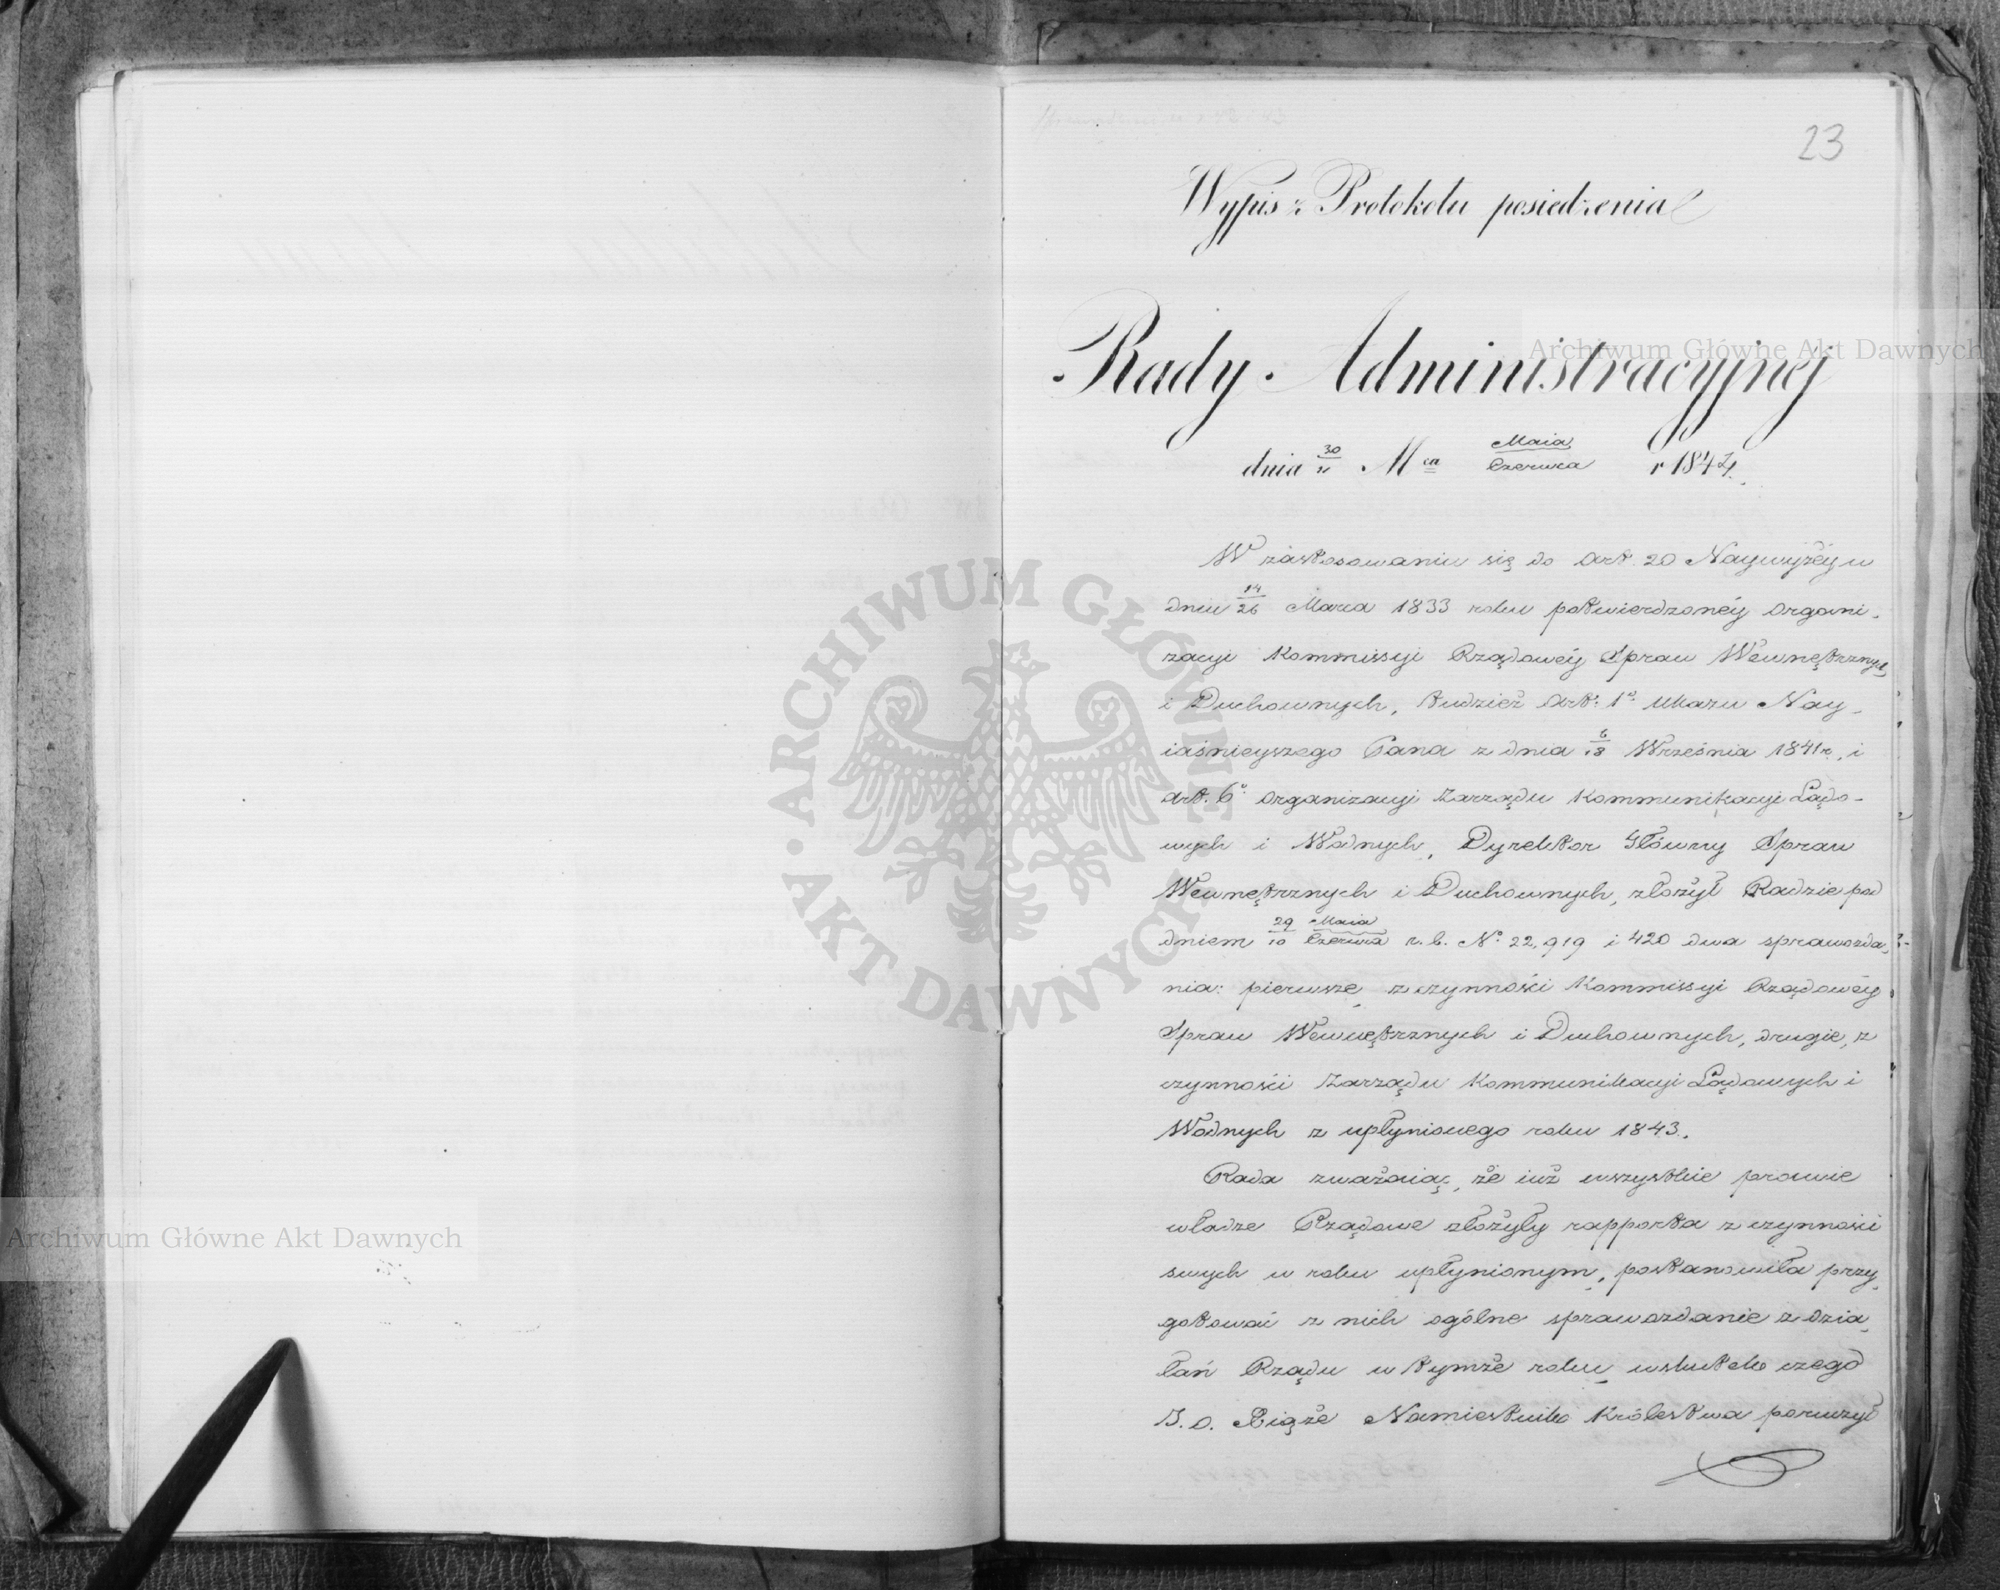 23
Wypis z Protokołu posiedzenia
Rady Administracyjnej
dnia 30/11 Mca Maia/Czerwca r 1844.
W zastosowaniu się do Art. 20 Naywyżéy w
dniu 14/26 Marca 1833 roku potwierdzonéy Organi-
zacyi Kommissyi Rządowéy Spraw Wewnętrznych
i Duchownych, tudzież Art: 1o. Ukazu Nay-
iaśnieyszego Pana z dnia 6/18 Września 1841 r., i
Art. 6o Organizacyi Zarządu Kommunikacyi Lądo-
wych i Wodnych, Dyrektor Główny Spraw
Wewnętrznych i Duchownych, złożył Radzie pod
dniem 29/10 Maia/Czerwca r. b. No 22,919 i 420 dwa sprawozda-
nia: pierwsze, z czynności Kommissyi Rządowéy
Spraw Wewnętrznych i Duchownych, drugie, z
czynności Zarządu Kommunikacyi Lądowych i
Wodnych z upłynionego roku 1843.
Rada zważaiąc, że iuż wszystkie prawie
władze Rządowe złożyły rapporta z czynności
swych w roku upłynionym, postanowiła przy-
gotować z nich ogólne sprawozdanie z dzia-
łań Rządu w tymże roku, wskutek czego
J. O. Xiąże Namiestnik Królestwa poruczył
Archiwum Główne Akt Dawnych
Archiwum Główne Akt Dawnych
ARCHIWUM GŁÓWNE AKT DAWNYCH